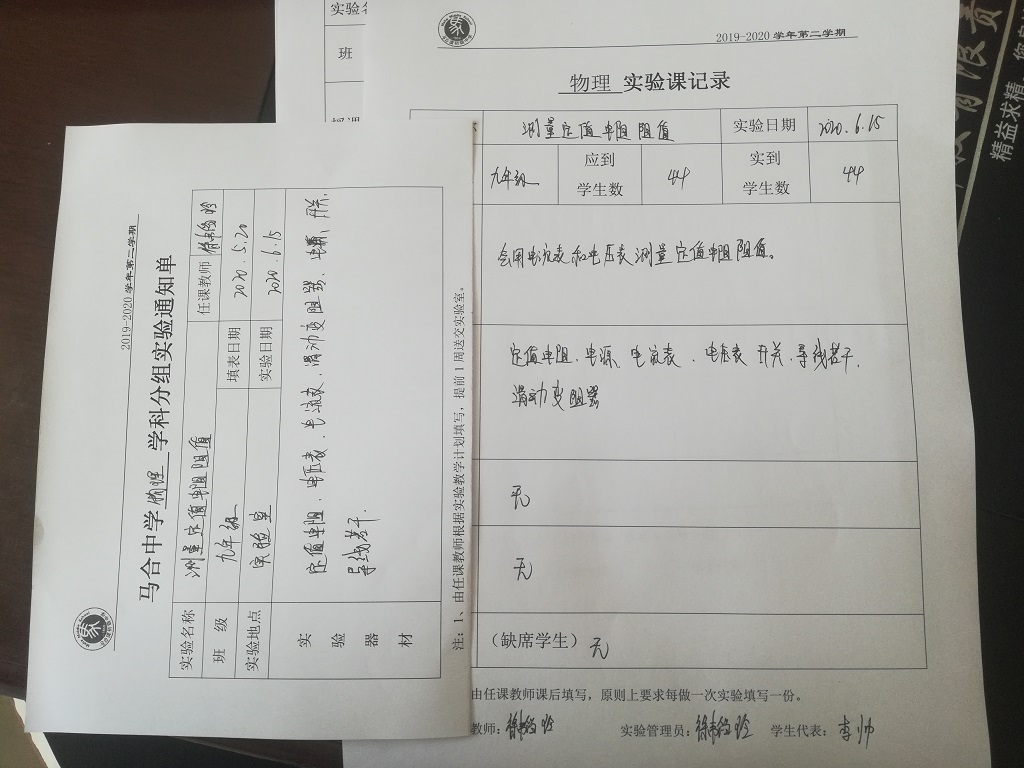 2019-2020 学年第二学期
马合中学 物理 学科分组实验通知单
实验名称 测量定值电阻阻值 任课教师
班 级 九年级 填表日期 2020.5.20
实验地点 实验室 实验日期 2020.6.15
实验器材 定值电阻、电压表、电流表、滑动变阻器、电源、开关、
导线若干.
注：1、由任课教师根据实验教学计划填写，提前 1 周送交实验室。
实验名
班
授课
2019-2020 学年第二学期
物理 实验课记录
测量定值电阻阻值 实验日期 2020.6.15
九年级 应到学生数 44 实到学生数 44
会用电流表和电压表测量定值电阻阻值。
定值电阻、电源、电流表、电压表 开关、导线若干、
滑动变阻器
无
无
（缺席学生）无
由任课教师课后填写，原则上要求每做一次实验填写一份。
教师： 实验管理员： 学生代表：李帅
有限责
精益求精，您